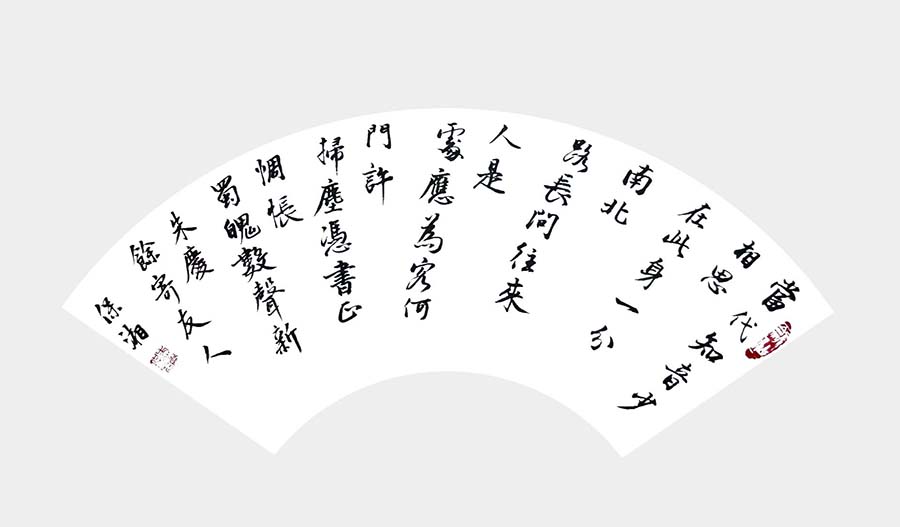 當代知音少
相思
在此身一分
南北
路長問往來
人是
處應為客何
門許
掃塵憑書正
惆悵
蜀魄數聲新
朱慶
餘寄友人
保湘